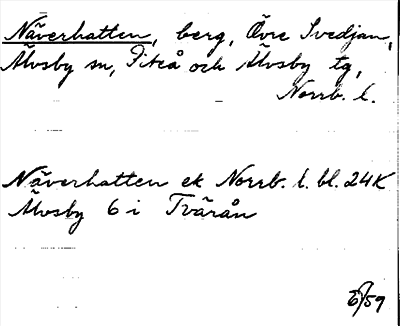 Näverhatten, berg, Övre Svedjan,
Älvsby sn, Piteå och Älvsby tg,
Norrb. l.
Näverhatten ek Norrb. l. bl. 24K
Älvsby 6 i Tvärån
/59